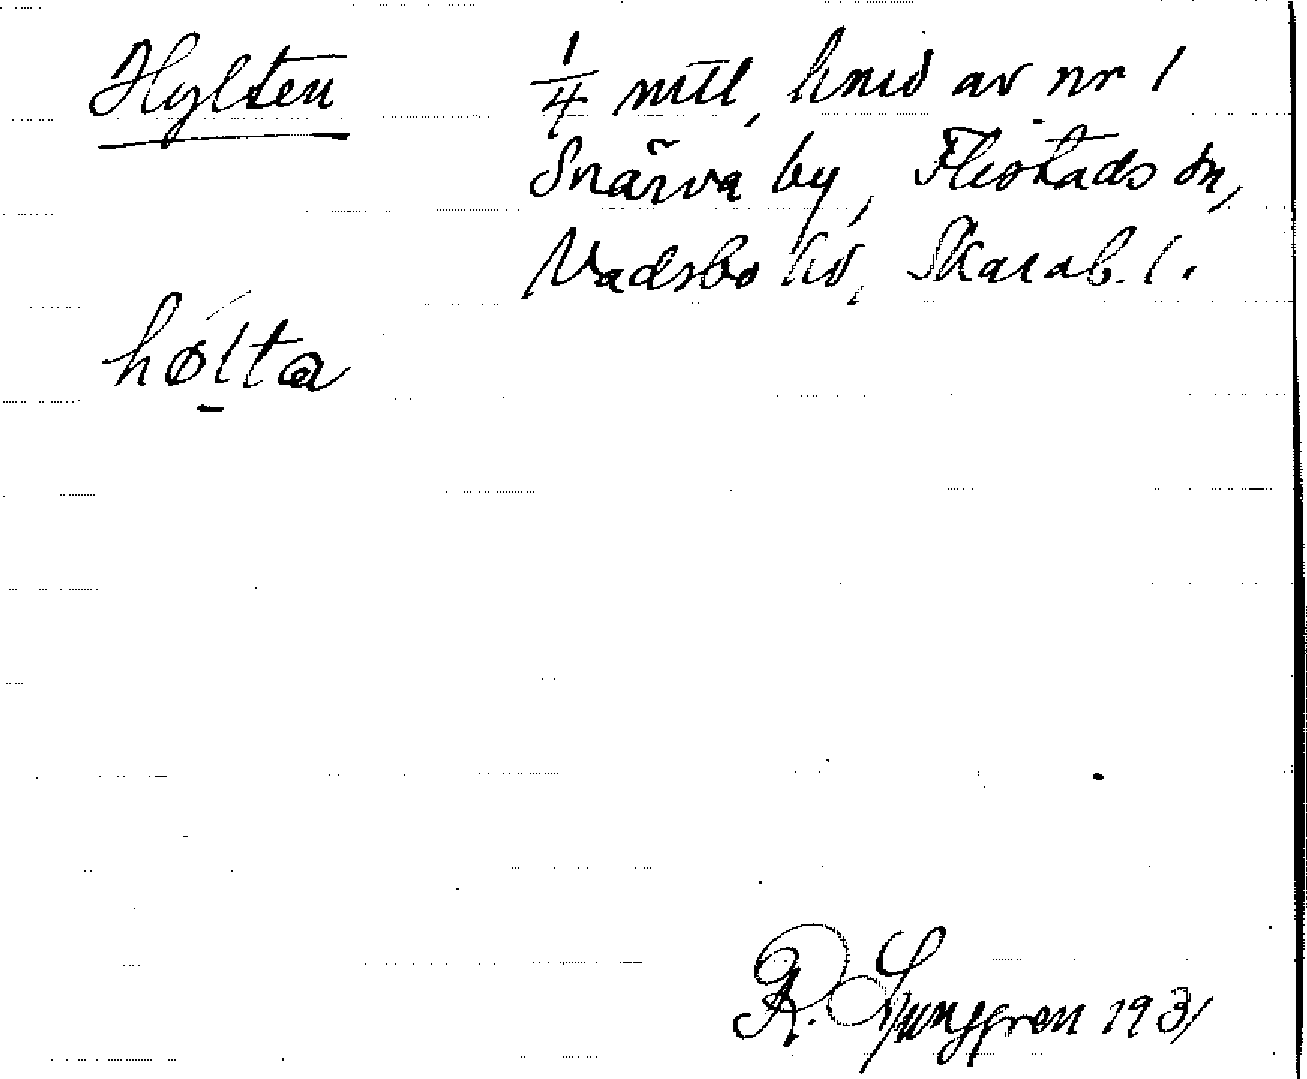 Hylten
1/4 mtl, hmd av nr 1
Snärva by, Flistads sn,
Vadsbo hd, Skarab. l.
hølta
R. Ljunggren 1931